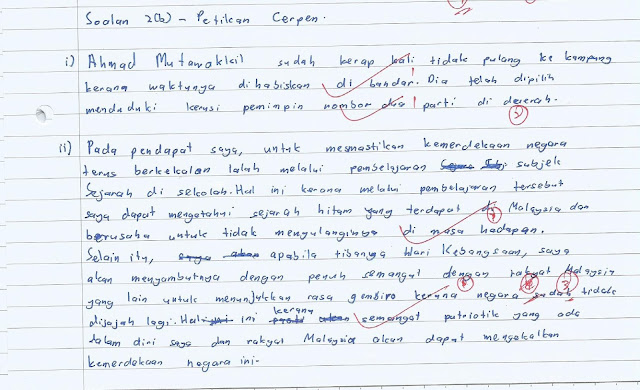 Soalan 2(b) - Petikan Cerpen.
i) Ahmad Mutawakkil sudah kerap kali tidak pulang ke kampung
kerana waktunya dihabiskan di bandar. Dia telah dipilih
menduduki kerusi pemimpin nombor dua parti di daerah.
2
ii) Pada pendapat saya, untuk mesmastikan kemerdekaan negara
terus berkekalan ialah melalui pembelajaran subjek
Sejarah di sekolah. Hal ini kerana melalui pembelajaran tersebut
saya dapat mengetahui sejarah hitam yang terdapat di Malaysia dan
berusaha untuk tidak mengulanginya di masa hadapan.
Selain itu, apabila tibanya Hari Kebangsaan, saya
akan menyambutnya dengan penuh semangat dengan rakyat Malaysia
yang lain untuk menunjukkan rasa gembira kerana negara sudah tidak
dijajah lagi. Hal ini kerana semangat patriotik yang ada
dalam diri saya dan rakyat Malaysia akan dapat mengekalkan
kemerdekaan negara ini.